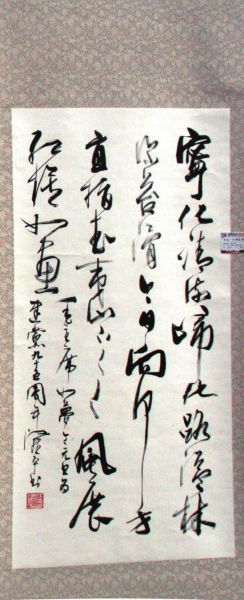 寧化清流歸化路隘林
深苔滑今日向何方
直指武夷山下〻〻風展
紅旗如畫
毛主席如夢令元旦
建黨九五周年
書